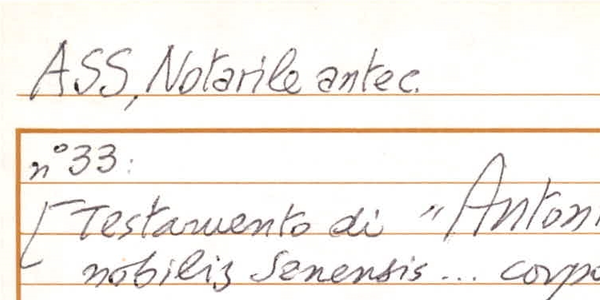 ASS, Notarile antec.
n° 33:
[Testamento di "Antoni
nobilis Senensis... corpo